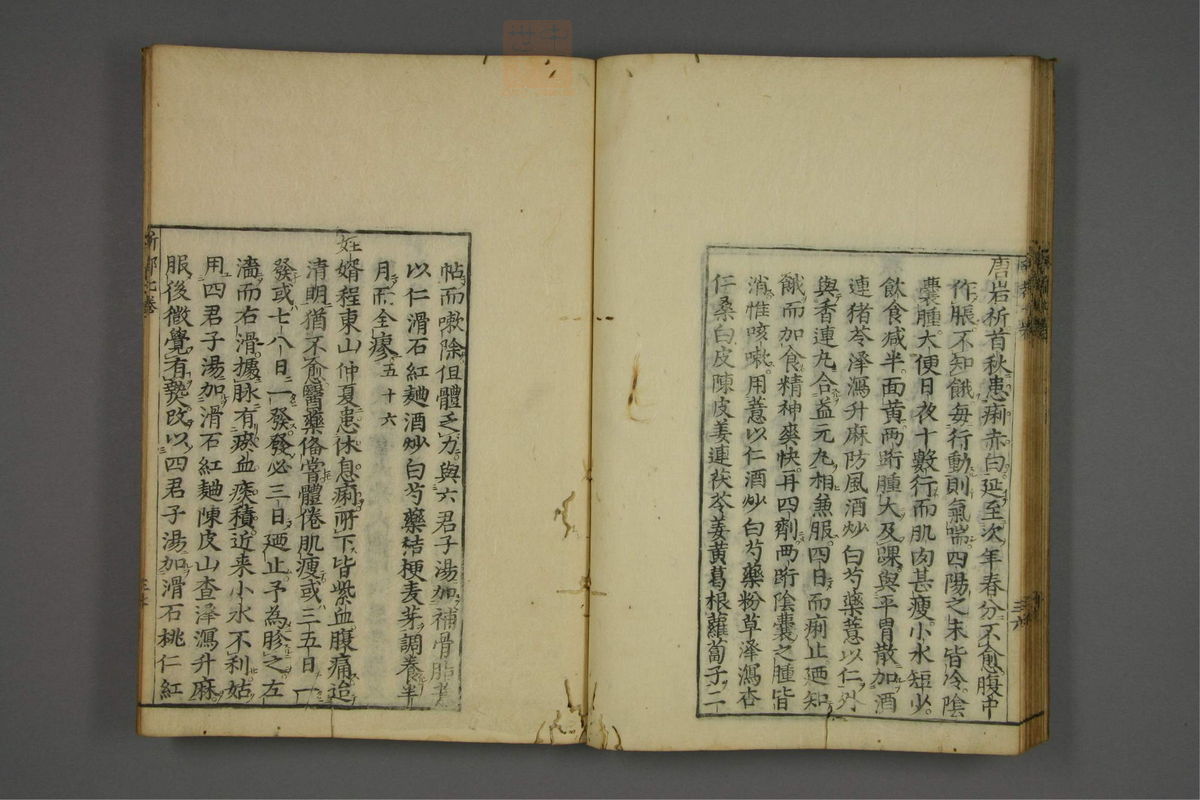 唐岩祈首秋患痢赤白延至次年春分不愈腹中
作脹不知餓每行動則氣喘四陽之末皆冷陰
囊腫大便日夜十數行而肌肉甚瘦小水短少
飲食減半面黃兩跗腫大及踝與平胃散加酒
連猪苓澤瀉升麻防風酒炒白芍藥薏以仁外
與香連丸合益元丸相兼服四日而痢止廼知
餓而加食精神爽快再四劑兩跗陰囊之腫皆
消惟咳嗽用薏以仁酒炒白芍藥粉草澤瀉杏
仁桑白皮陳皮姜連茯苓姜黃葛根蘿蔔子二
帖而嗽除但體乏力與六君子湯加補骨脂
以仁滑石紅麯酒炒白芍藥桔梗麦芽調養半
月而全瘳五十六
姪婿程東山仲夏患休息痢所下皆紫血腹痛迨
清明猶不愈醫藥俻嘗體倦肌瘦或三五日一
發或七八日一發發必三日廼止予為胗之左
濇而右滑據脉有瘀血痰積近来小水不利姑
用四君子湯加滑石紅麯陳皮山查澤瀉升麻
服後微覺有熱改以四君子湯加滑石桃仁紅